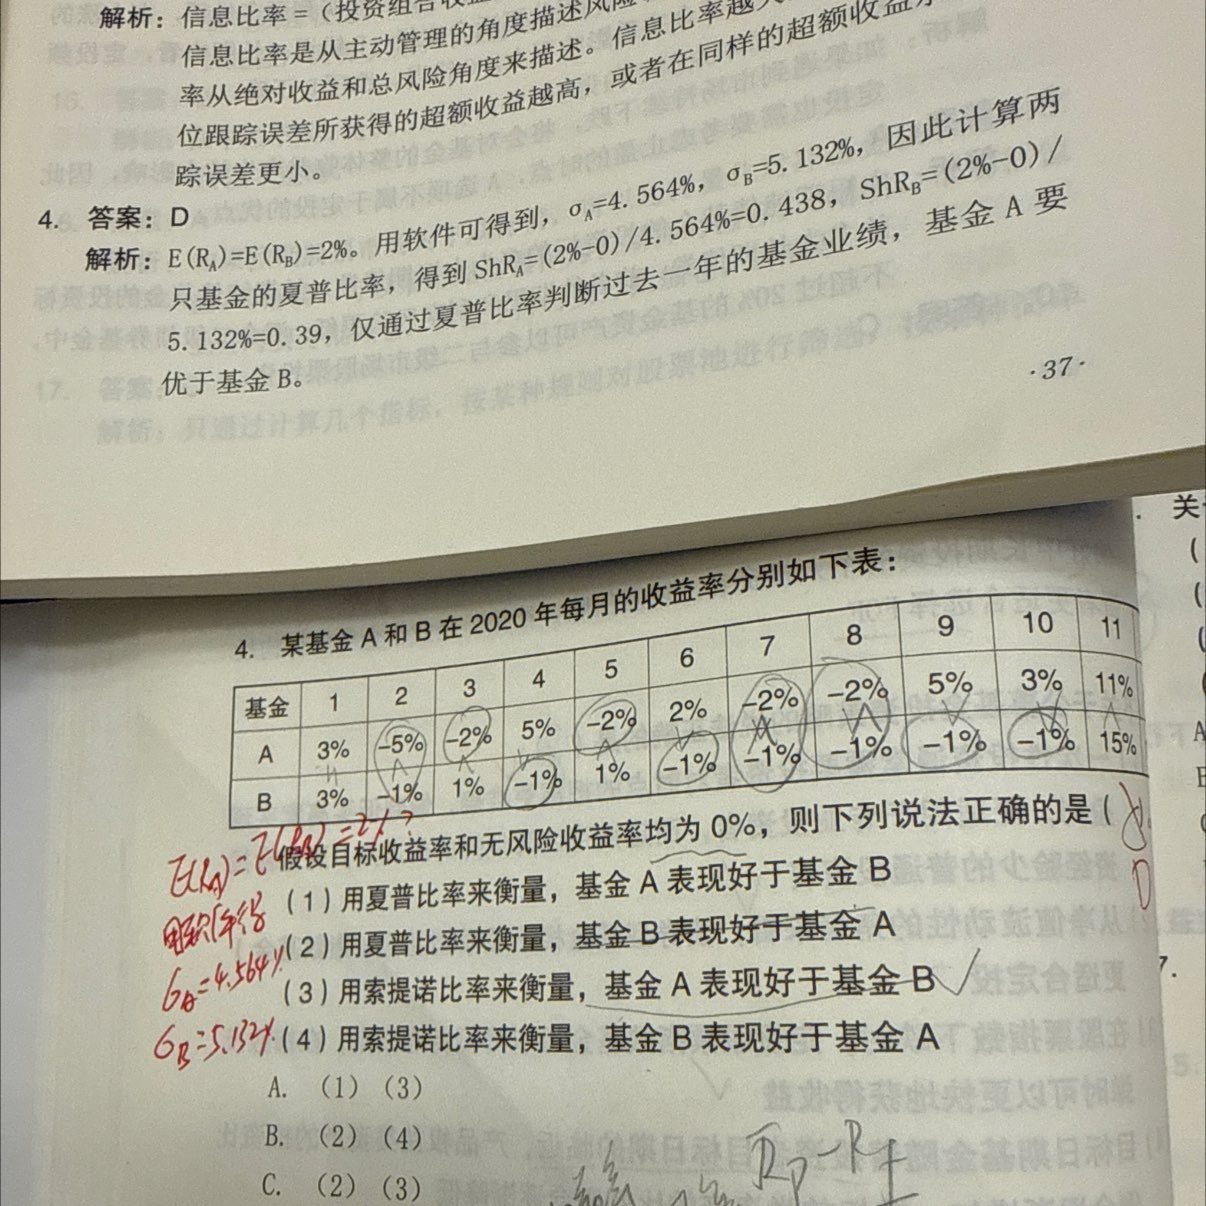 解析：信息比率=（投资组合收
信息比率是从主动管理的角度描述风险
率从绝对收益和总风险角度来描述。信息比率越
位跟踪误差所获得的超额收益越高，或者在同样的超额收益
踪误差更小。
4. 答案：D
解析：E(R_A)=E(R_B)=2%。用软件可得到，σ_A=4.564%，σ_B=5.132%，因此计算两
只基金的夏普比率，得到 ShR_A=(2%-0)/4.564%=0.438，ShR_B=(2%-0)/
5.132%=0.39，仅通过夏普比率判断过去一年的基金业绩，基金 A 要
优于基金 B。
·37·
关
4. 某基金 A 和 B 在 2020 年每月的收益率分别如下表：
基金 1 2 3 4 5 6 7 8 9 10 11
A 3% -5% -2% 5% -2% 2% -2% -2% 5% 3% 11%
B 3% -1% 1% -1% 1% -1% -1% -1% -1% -1% 15%
E(R_A)=E(R_B)=2%?
假设目标收益率和无风险收益率均为 0%，则下列说法正确的是（
D
（1）用夏普比率来衡量，基金 A 表现好于基金 B
用软件得
（2）用夏普比率来衡量，基金 B 表现好于基金 A
σ_A=4.564%
（3）用索提诺比率来衡量，基金 A 表现好于基金 B
σ_B=5.132%
（4）用索提诺比率来衡量，基金 B 表现好于基金 A
A. （1）（3）
B. （2）（4）
C. （2）（3）
R_p-R_f
7.